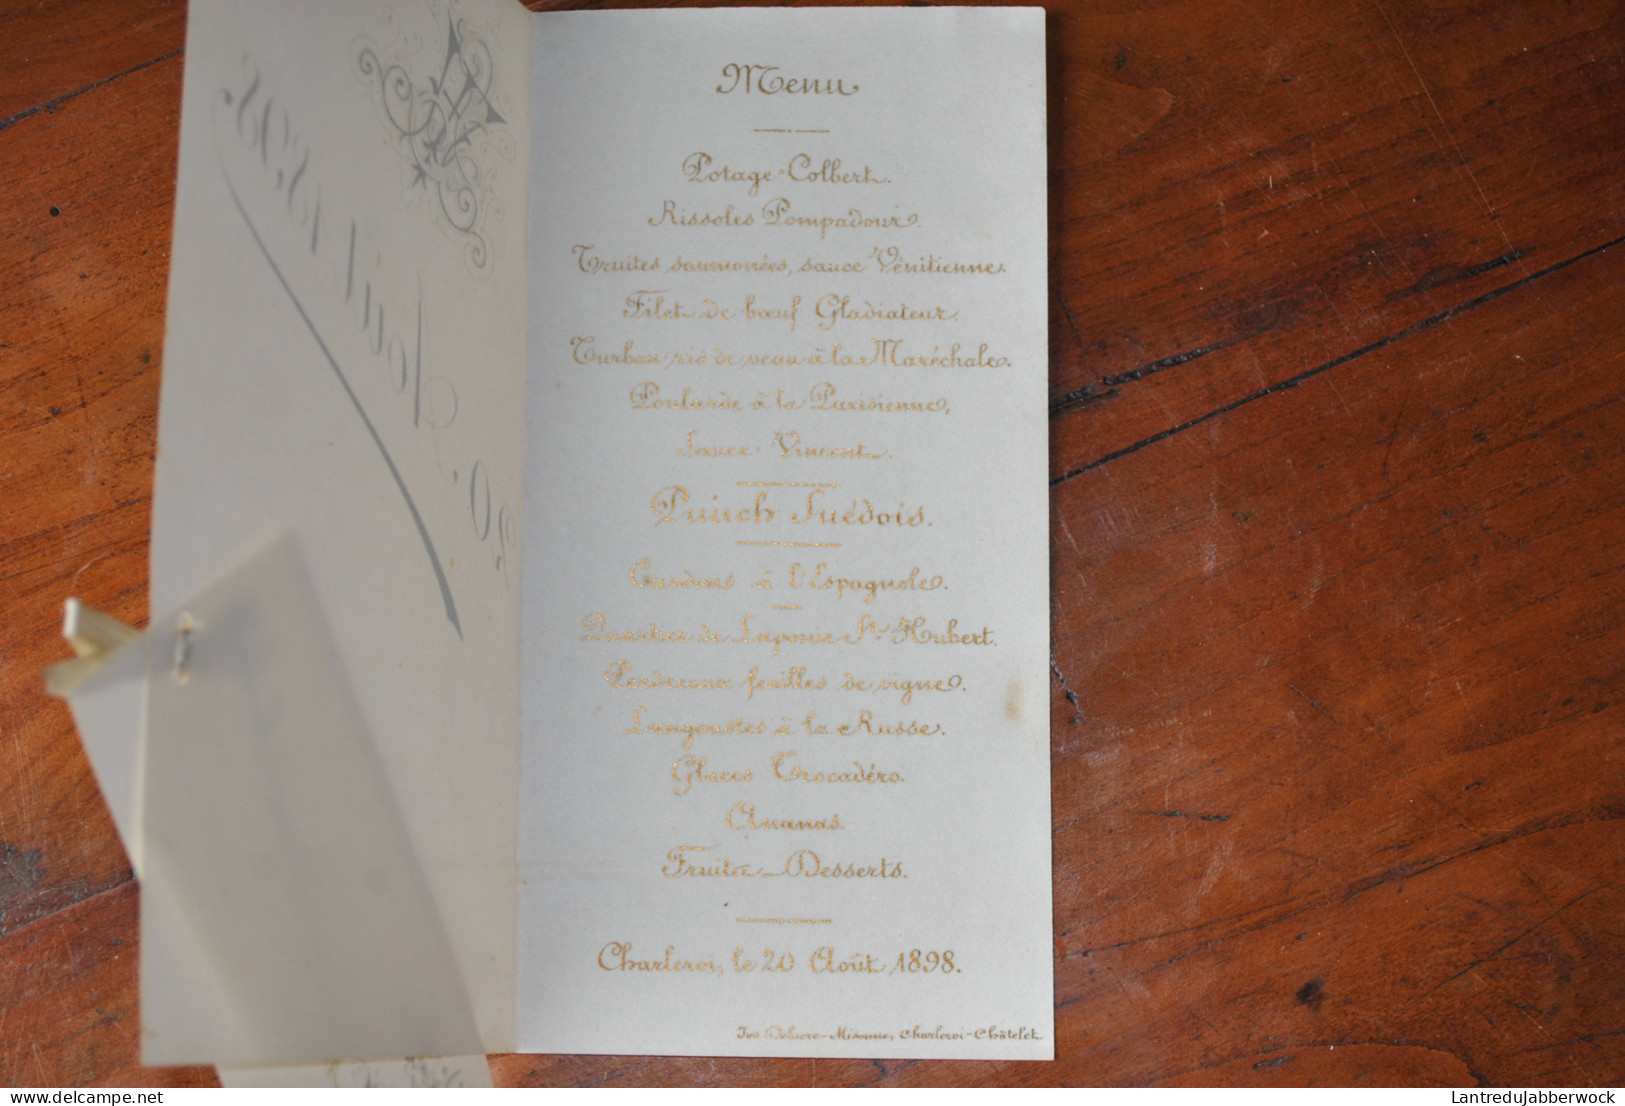 Menu
Potage Colbert.
Rissoles Pompadour.
Truites saumonées, sauce Vénitienne.
Filet de bœuf Gladiateur.
Turban ris de veau à la Maréchale.
Poularde à la Parisienne,
Sauce Vincent.
Punch Suédois.
Cardons à l'Espagnole.
Quartier de Laponie St Hubert.
Perdreaux feuilles de vigne.
Langoustes à la Russe.
Glaces Trocadéro.
Ananas.
Fruits - Desserts.
Charleroi, le 20 Août 1898.
Charleroi-Châtelet
20 Août 1898
Delcampe.net
LantreduJabberwock